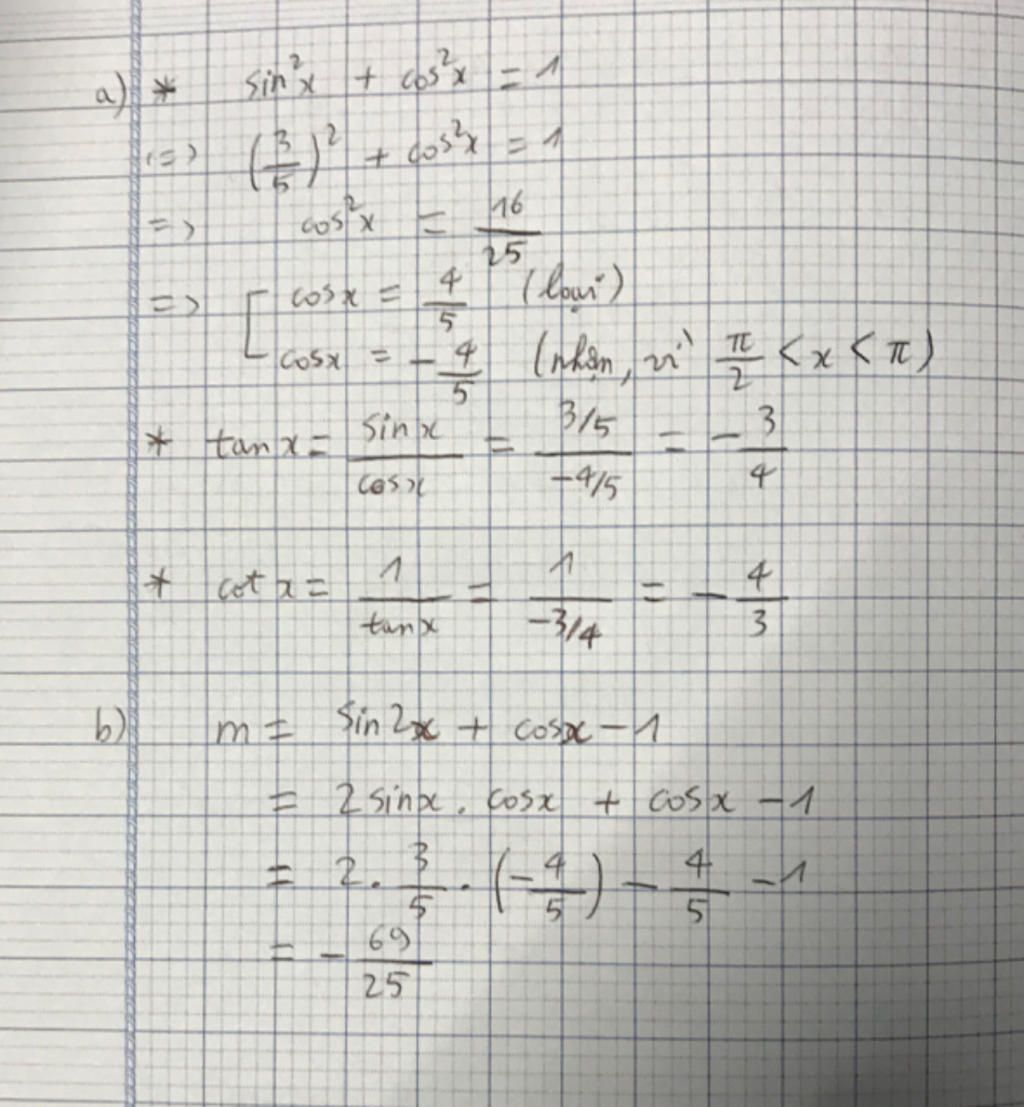 a) * sin²x + cos²x = 1
(=) (3/5)² + cos²x = 1
=> cos²x = 16/25
=> [ cosx = 4/5 (loại)
cosx = -4/5 (nhận, vì π/2 < x < π)
* tan x = sin x / cos x = 3/5 / -4/5 = - 3/4
* cot x = 1 / tan x = 1 / -3/4 = - 4/3
b) m = sin2x + cosx - 1
= 2 sinx . cosx + cosx - 1
= 2 . 3/5 . (-4/5) - 4/5 - 1
= - 69/25